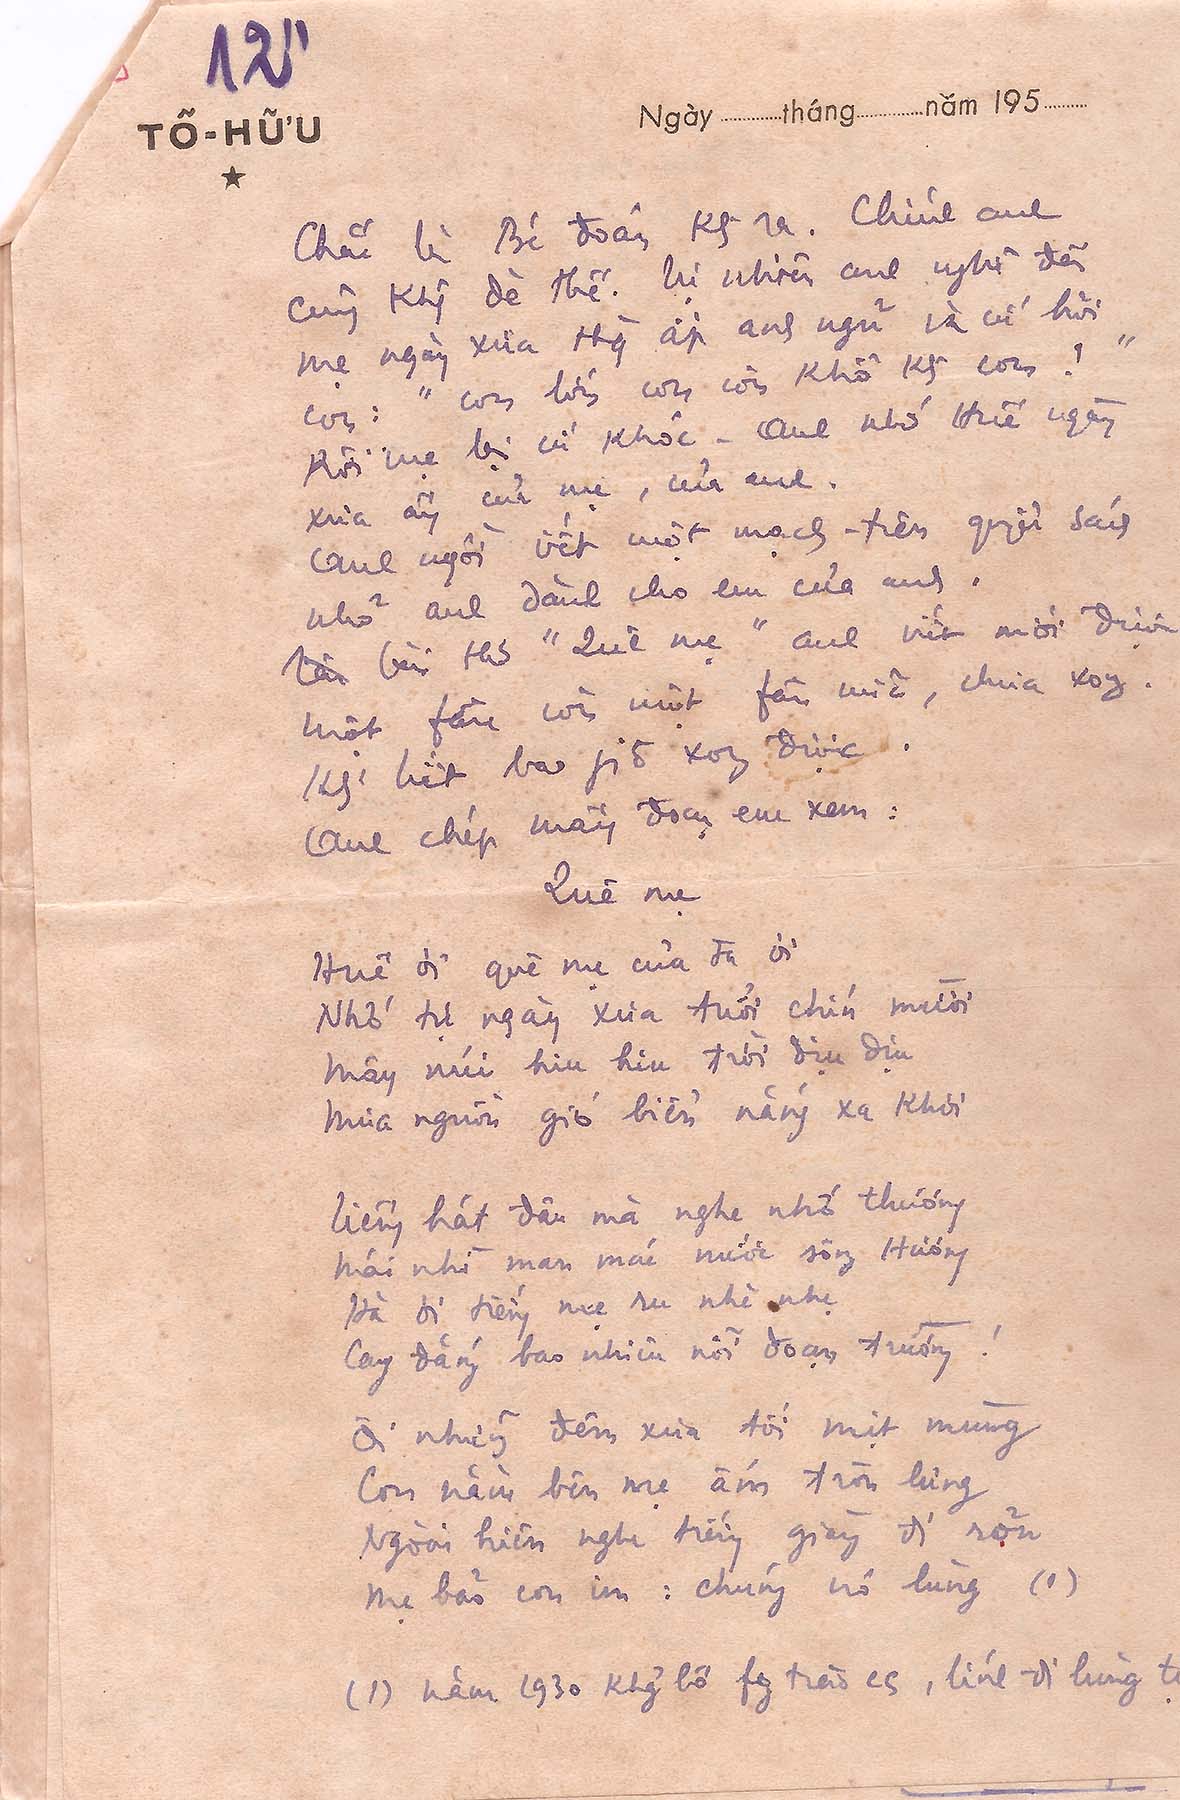 12"
TỐ-HỮU
Ngày tháng năm 195
Chắc là Bé đoán kg ra. Chính anh
cũng khg dè thế. Tự nhiên anh nghĩ đến
mẹ ngày xưa thg ấp anh ngủ và cứ hỏi
con: " con lớn con còn khổ kg con! "
Rồi mẹ lại cứ khóc - Anh nhớ Huế ngày
xưa ấy của mẹ, của anh.
Anh ngồi viết một mạch - trên quyển sách
nhỏ anh dành cho em của anh.
bài thơ " Quê mẹ " anh viết mới được
một fần còn một fần nữa, chưa xong.
Kg biết bao giờ xong được.
Anh chép mấy đoạn em xem:
Quê mẹ
Huế ơi quê mẹ của ta ơi
Nhớ tự ngày xưa tuổi chín mười
Mây núi hiu hiu trời dịu dịu
Mưa nguồn gió biển nắng xa khơi
Tiếng hát đâu mà nghe nhớ thương
Mái nhì man mác nước sông Hương
Hà ơi tiếng mẹ ru nhè nhẹ
Cay đắng bao nhiêu nỗi đoạn trường!
Ôi những đêm xưa tối mịt mùng
Con nằm bên mẹ ấm tròn lưng
Ngoài hiên nghe tiếng giày đi rộn
Mẹ bảo con im: chúng nó lùng (1)
(1) năm 1930 khg bố fg trào cs, lính đi lùng